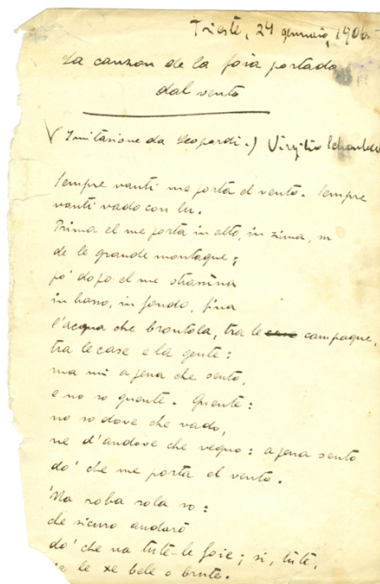 Trieste, 24 gennaio, 190
La canzon de la foia portada
dal vento
(Imitazione da Leopardi.) Virgilio
Sempre vanti me porta el vento. Sempre
vanti vado con lu.
Prima el me porta in alto, in zima, in
de le grande montagne;
po' dopo el me strassina
in basso, in fondo, fina
l'acqua che brontola, tra le campagne,
tra le case e la gente:
ma mi apena che sento,
e no so gnente. Gnente:
no so dove che vado,
nè d'andove che vegno: apena sento
do' che me porta el vento.
'Na roba sola so:
che sicuro andarò
do' che va tute le foie; si, tute,
le xe bele o brute.